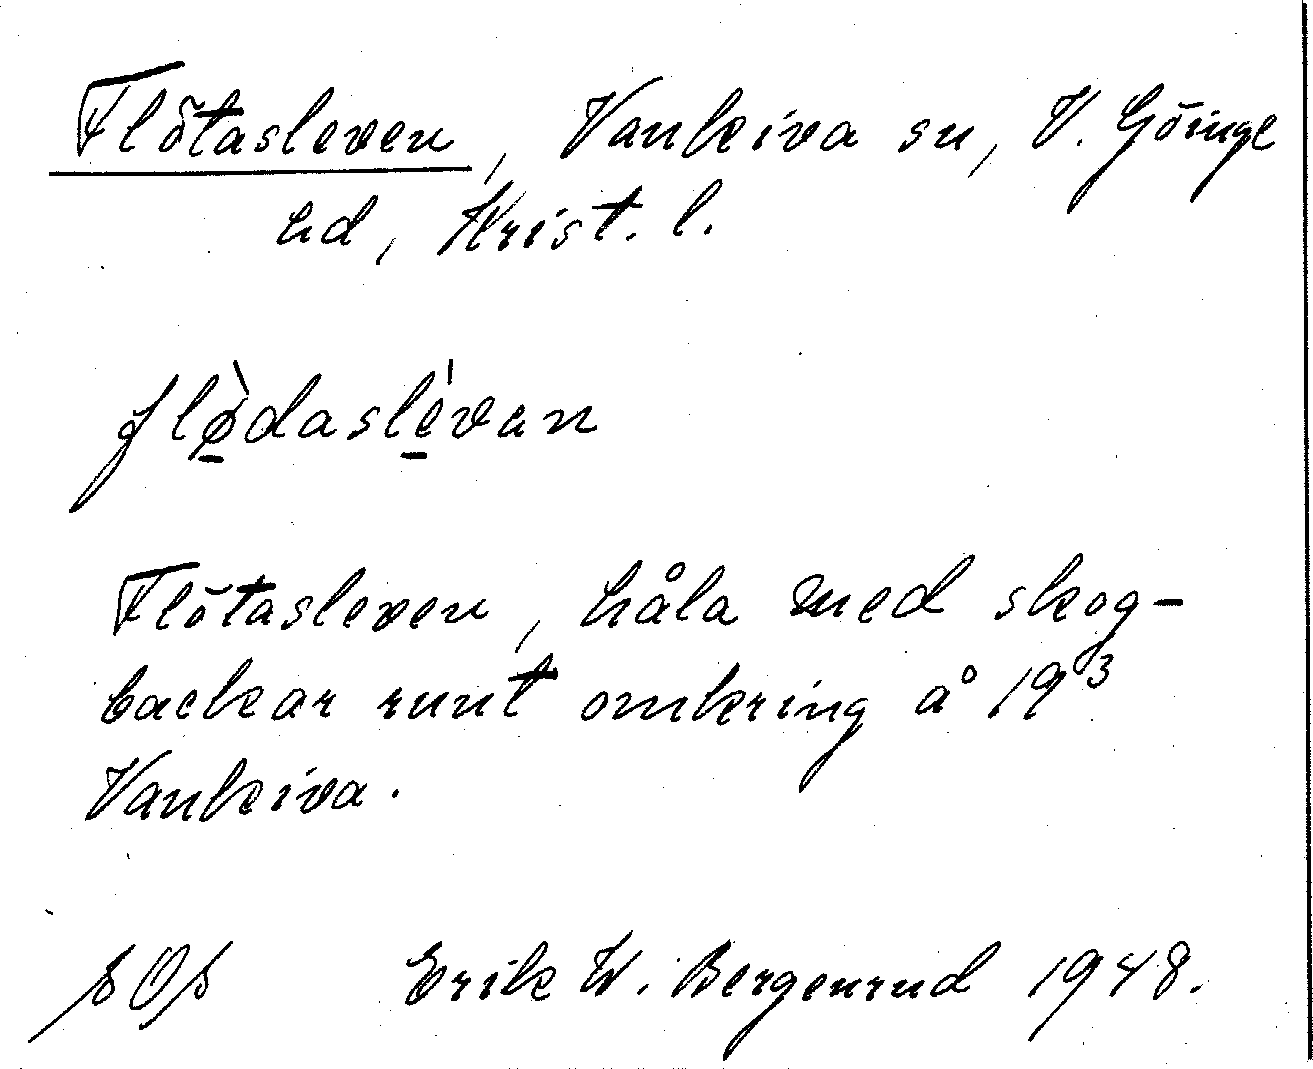 Flötasleven, Vankiva sn, V. Göinge
hd, Krist. l.
flø̱̀dasle̱̍van
Flötasleven, håla med skog-
backar runt omkring å 19³
Vankiva.
SOS Erik W. Bergenrud 1948.